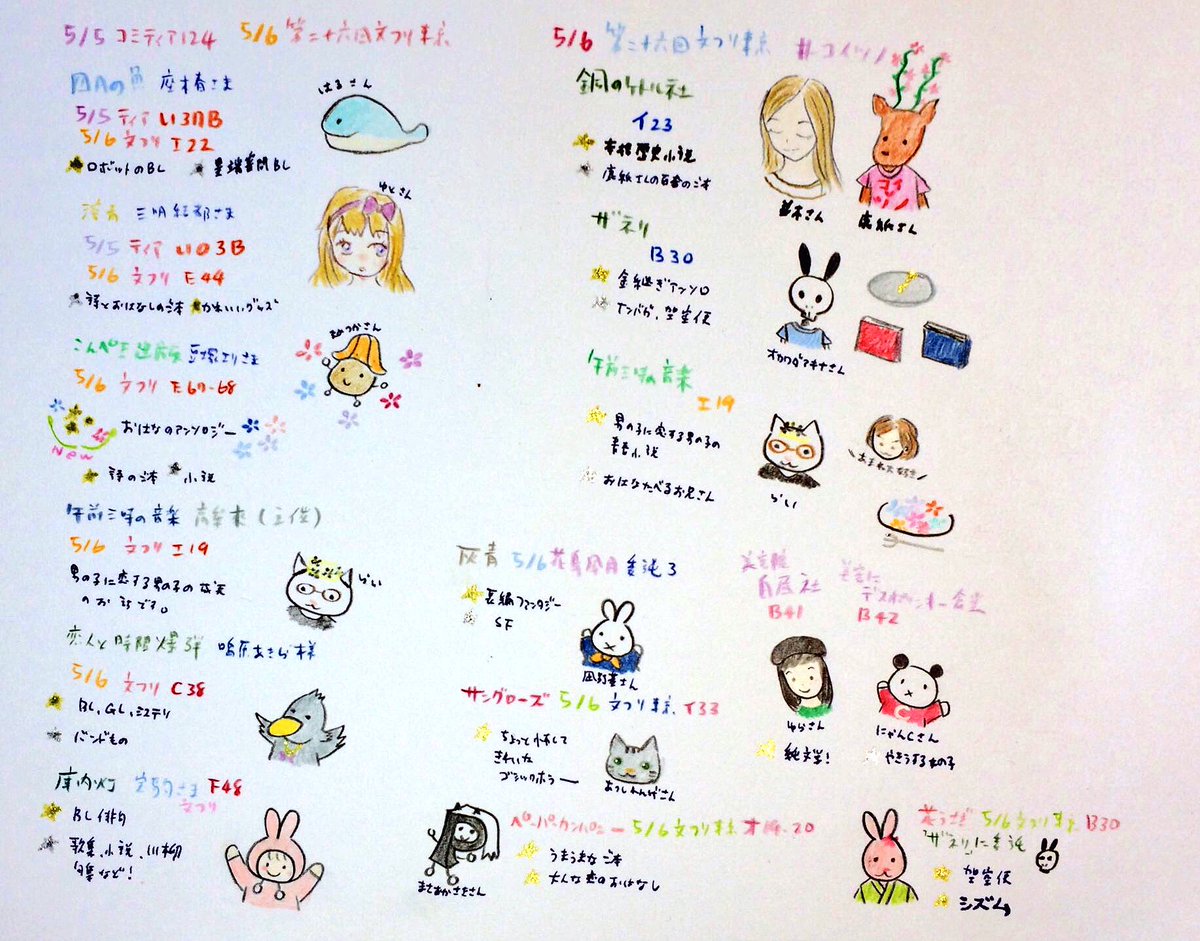 5/5 コミティア124 5/6 第二十六回文フリ東京
座木春さま
はるさん
5/5 ティア い37B
5/6 文フリ エ22
ロボットのBL
洋青 三明結都さま
ゆとさん
5/5 ティア い03B
5/6 文フリ E44
詩とおはなしのご本 かわいいグッズ
こんぺき出版 豆塚エリさま
5/6 文フリ E67-68
おはなのアンソロジー
New
詩のご本 小説
午前三時の音楽 (主催)
5/6 文フリ エ19
男の子に恋する男の子の
のお話です。
らい
恋人と時限爆弾 鳴原あきら様
5/6 文フリ C38
BL、GL、ミステリ
バンドもの
庫内灯 さま F48
文フリ
BL俳句
歌集、小説、川柳
句集など!
5/6 第二十六回文フリ東京 #コイツノ
銅のケトル社
イ23
本格歴史小説
鹿紙さんの百合のご本
並木さん
鹿紙さん
コイツノ
ザネリ
B30
金継ぎアンソロ
オカワダアキナさん
午前三時の音楽
エ19
男の子に恋する男の子の
青春小説
おはなたべるお兄さん
らい
灰青 5/6 花鳥風月 委託3
長編ファンタジー
SF
凪野基さん
サングローズ 5/6 文フリ東京 イ33
ちょっと怖くて
きれいな
ゴシックホラー
B41
ゆらさん
純文学!
B42
にゃんしーさん
C
やきゅうする女の子
ペーパーカンパニー 5/6 文フリ東京
うまうまなご本
大人な恋のおはなし
まさおかさをさん
花うさぎ 5/6 文フリ東京 B30
「ザネリ」に委託
架空便
シズム